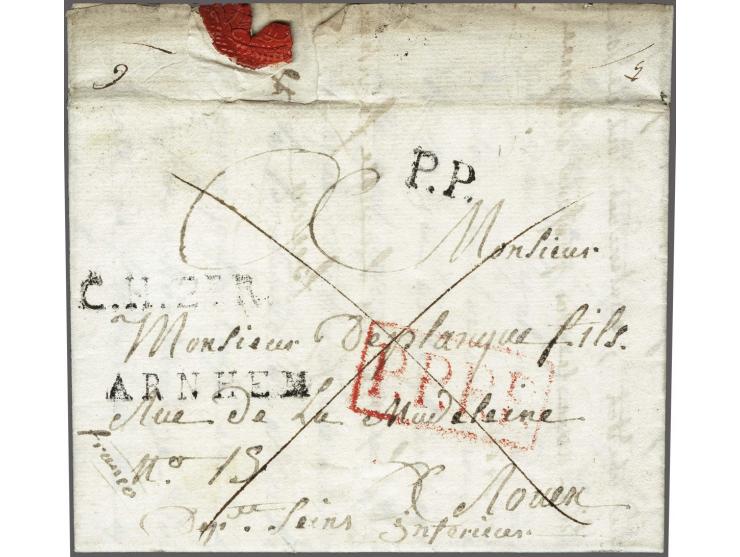 P.P.
Monsieur
C.H.3.R.
à Monsieur Deplanque fils.
P.P.P.P.
ARNHEM
Rue De La Madeleine
franco
No. 15
à Rouen
Depte. Seine inferieur